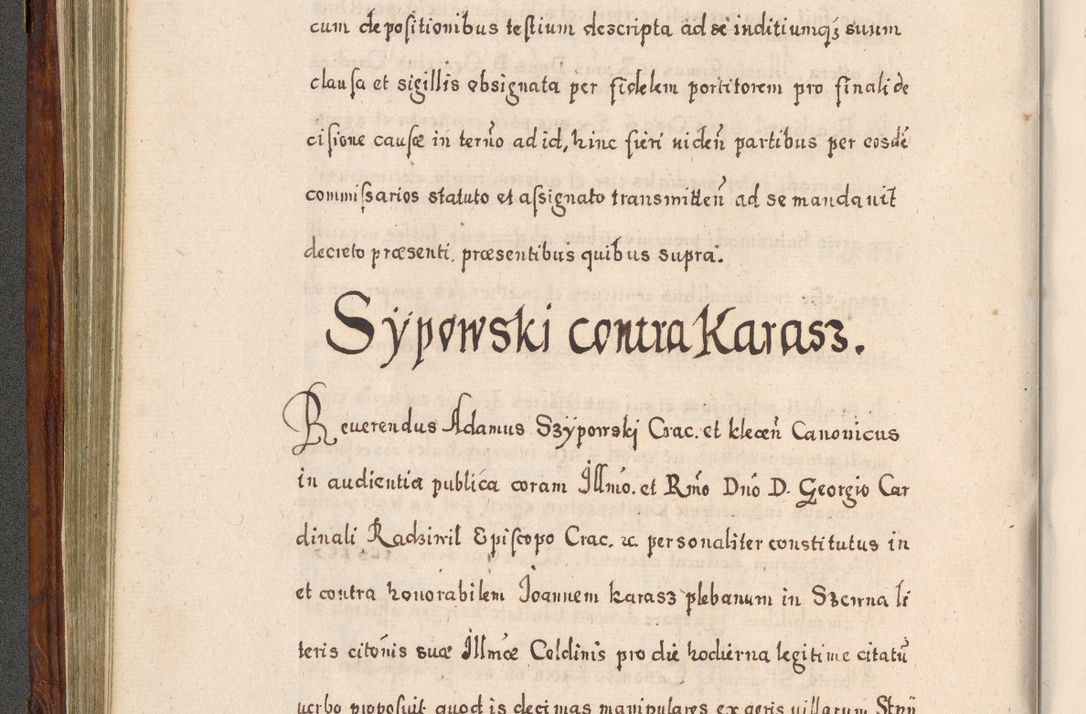 cum depositionibus testium descripta ad se inditiumqꝫ suum
clausa et sigillis obsignata per fidelem portitorem pro finali de
cisione causæ in terno ad id, hinc fieri uiden̄ partibus per eosdē
commissarios statuto et assignato transmitten̄ ad se mandauit
decreto præsenti. præsentibus quibus supra.
Sÿpowski contra Karasz.
Reuerendus Adamus Szÿpowskj Crac. et klecen̄ Canonicus
in audientia publica coram Jllmo. et Rmo Dno D. Georgio Car
dinali Radziwil Episcopo Crac. etc. personaliter constitutus in
et contra honorabilem Joannem karasz plebanum in Szerwna li
teris citōnis suæ Jllmæ Celdinis pro die hodierna legitime citatū
uerbo proposuit quod is decimas manipulares ex agris uillarum